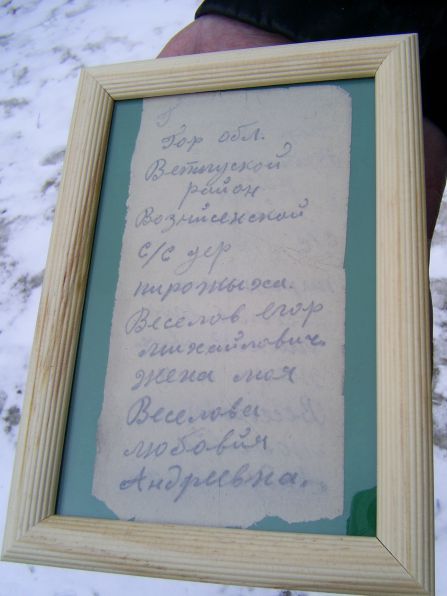 Гор обл.
Ветлуской
район
Вознисенской
с/с дер
пирожыха.
Веселов егор
михайлович
жена моя
Веселова
любовия
Андреевна.